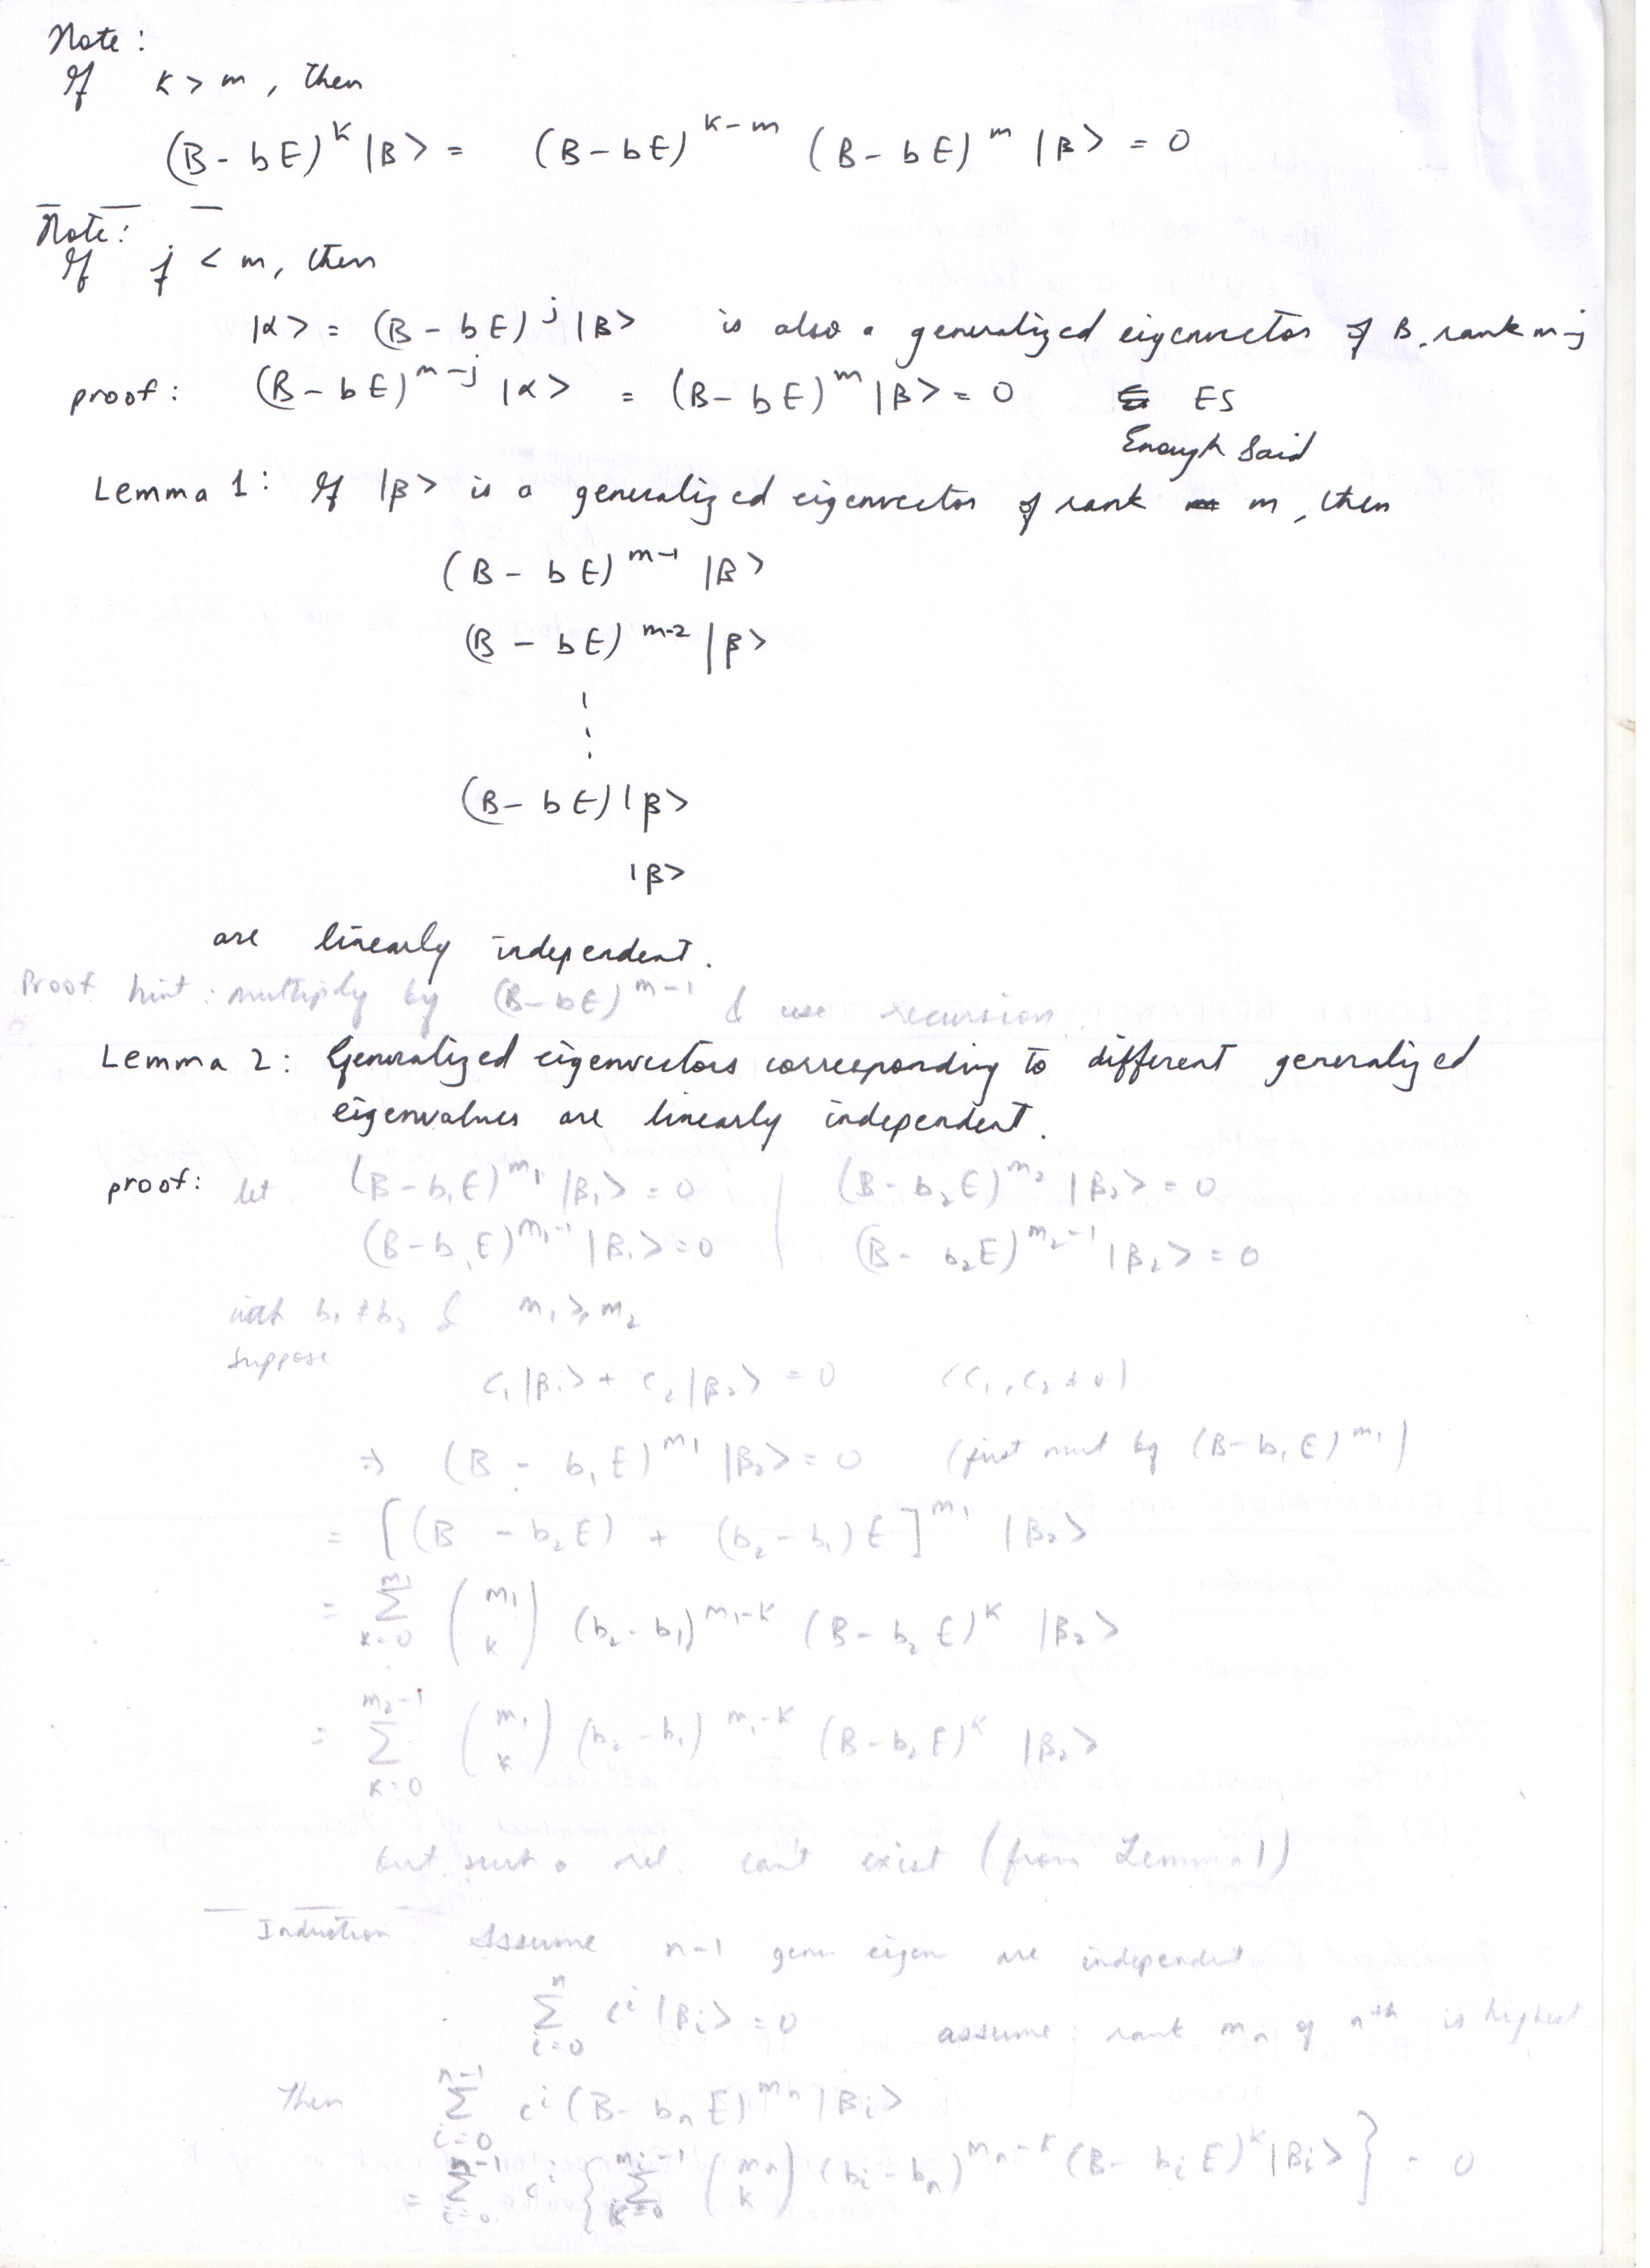 Note:
If K > m, then
(B - bE)^K |β> = (B - bE)^{K-m} (B - bE)^m |β> = 0
Note:
If j < m, then
|α> = (B - bE)^j |β> is also a generalized eigenvector of B, rank m-j
proof: (B - bE)^{m-j} |α> = (B - bE)^m |β> = 0 ES
Enough Said
Lemma 1: If |β> is a generalized eigenvector of rank m, then
(B - bE)^{m-1} |β>
(B - bE)^{m-2} |β>
⋮
(B - bE) |β>
|β>
are linearly independent.
Proof hint: multiply by (B-bE)^{m-1} & use recursion.
Lemma 2: Generalized eigenvectors corresponding to different generalized
eigenvalues are linearly independent.
proof: let (B-b₁E)^{m₁} |β₁> = 0 | (B-b₂E)^{m₂} |β₂> = 0
(B-b₁E)^{m₁-1} |β₁> = 0 | (B-b₂E)^{m₂-1} |β₂> = 0
with b₁ ≠ b₂ & m₁ ≥ m₂
Suppose
c₁|β₁> + c₂|β₂> = 0 (c₁, c₂ ≠ 0)
⇒ (B - b₁E)^{m₁} |β₂> = 0 (just mult by (B-b₁E)^{m₁})
= [(B - b₂E) + (b₂-b₁)E]^{m₁} |β₂>
= ∑_{K=0}^{m₁} (m₁ K) (b₂-b₁)^{m₁-K} (B-b₂E)^K |β₂>
= ∑_{K=0}^{m₂-1} (m₁ K) (b₂-b₁)^{m₁-K} (B-b₂E)^K |β₂>
but such a rel. can't exist (from Lemma 1)
Induction Assume n-1 gen eigen are independent
∑_{i=0}^{n} c^i |β_i> = 0 assume: rank m_n of n^{th} is highest
Then ∑_{i=0}^{n-1} c^i (B-b_nE)^{m_n} |β_i>
= ∑_{i=0}^{n-1} c^i { ∑_{K=0}^{m_i-1} (m_n K) (b_i-b_n)^{m_n-K} (B-b_iE)^K |β_i> } = 0